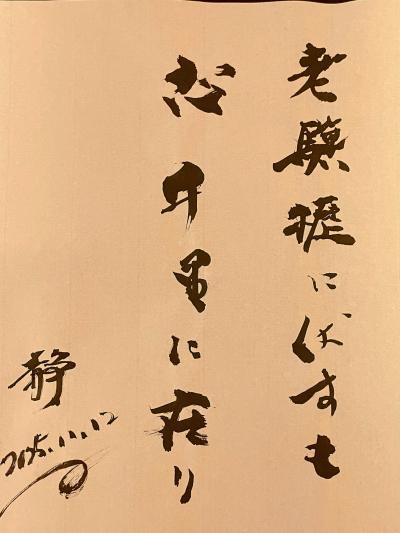 老驥櫪に伏すも
志千里に在り
静
2025.11.12